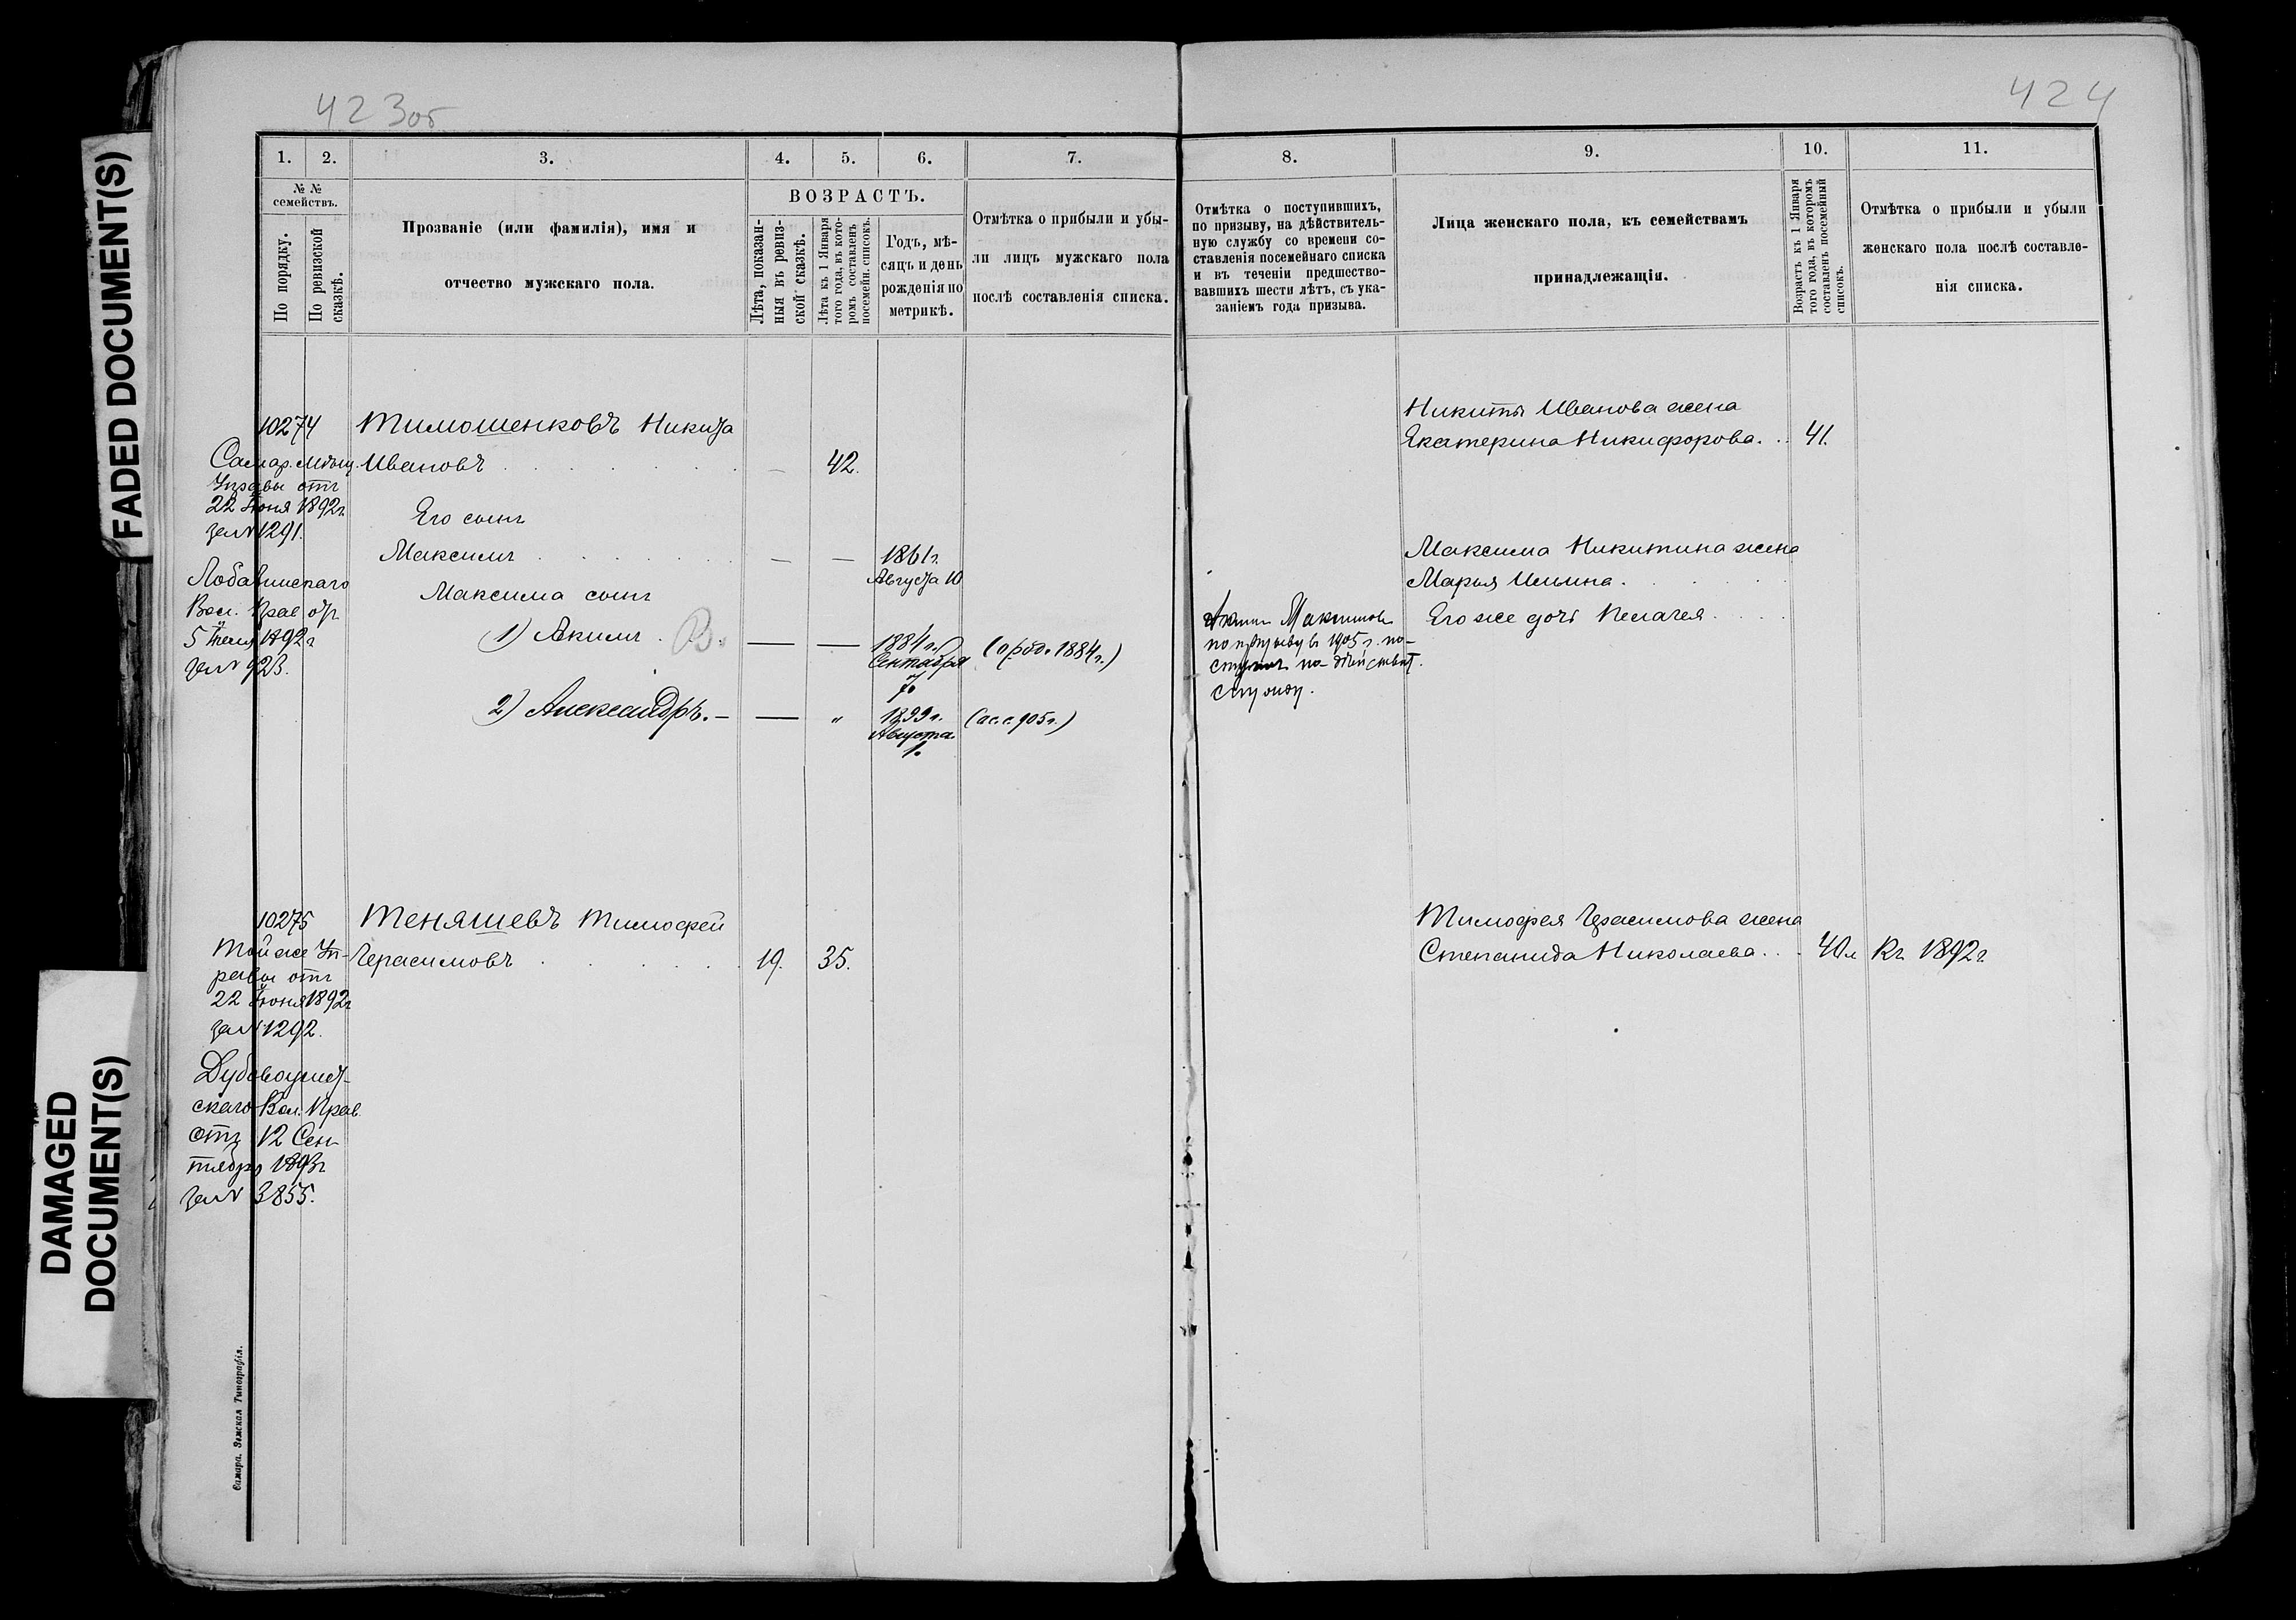 423об
1.
2.
3.
4.
5.
6.
7.
№ №
семействъ.
По порядку.
По ревизской
сказкѣ.
Прозваніе (или фамилія), имя и
отчество мужскаго пола.
ВОЗРАСТЪ.
Лѣта, показан-
ныя въ ревиз-
ской сказкѣ.
Лѣта къ 1 Января
того года, въ кото-
ромъ составленъ
посемейн. списокъ.
Годъ, мѣ-
сяцъ и день
рожденія по
метрикѣ.
Отмѣтка о прибыли и убы-
ли лицъ мужскаго пола
послѣ составленія списка.
10274
Самар. Мѣщ.
Управы отъ
22 Іюня 1892г.
за № 1291.
Вол. Прав. отъ
1892 г
за № 923.
Тимошенковъ Никита
Ивановъ . . . . . . . — 42.
Его сынъ
Максимъ . . . . . — — 1861г.
Августа 10
Максима сынъ
1) Акимъ . В. — — 1884 г. (обр. 1884г.)
Сентября
7.
2) Александръ. — — " 1899 г. (ас.с. 905г.)
Августа
1.
10275
Той же Уп-
равы отъ
22 Іюня 1892г
за № 1292.
Дубовоумет-
скаго Вол. Прав.
отъ 12 Сен-
тября 1893г
за № 3855.
Теняшевъ Тимофей
Герасимовъ . . . . . . 19. 35.
Самара. Земская Типографія.
424
8.
9.
10.
11.
Отмѣтка о поступившихъ,
по призыву, на дѣйствитель-
ную службу со времени со-
ставленія посемейнаго списка
и въ теченіи предшество-
вавшихъ шести лѣтъ, съ ука-
заніемъ года призыва.
Лица женскаго пола, къ семействамъ
принадлежащія.
Возрастъ къ 1 Января
того года, въ которомъ
составленъ посемейный
списокъ.
Отмѣтка о прибыли и убыли
женскаго пола послѣ составле-
нія списка.
Никиты Иванова жена
Екатерина Никифорова. . . 41.
Максима Никитина жена
Марья Ильина. . . . .
Его же дочь Пелагея . . . .
Акимъ Максимовъ
по призыву в 1905 г. по-
ступилъ на дѣйствит.
службу.
Тимофея Герасимова жена
Степанида Николаева. . . 40л Къ 1892г.
FADED DOCUMENT(S)
DAMAGED
DOCUMENT(S)